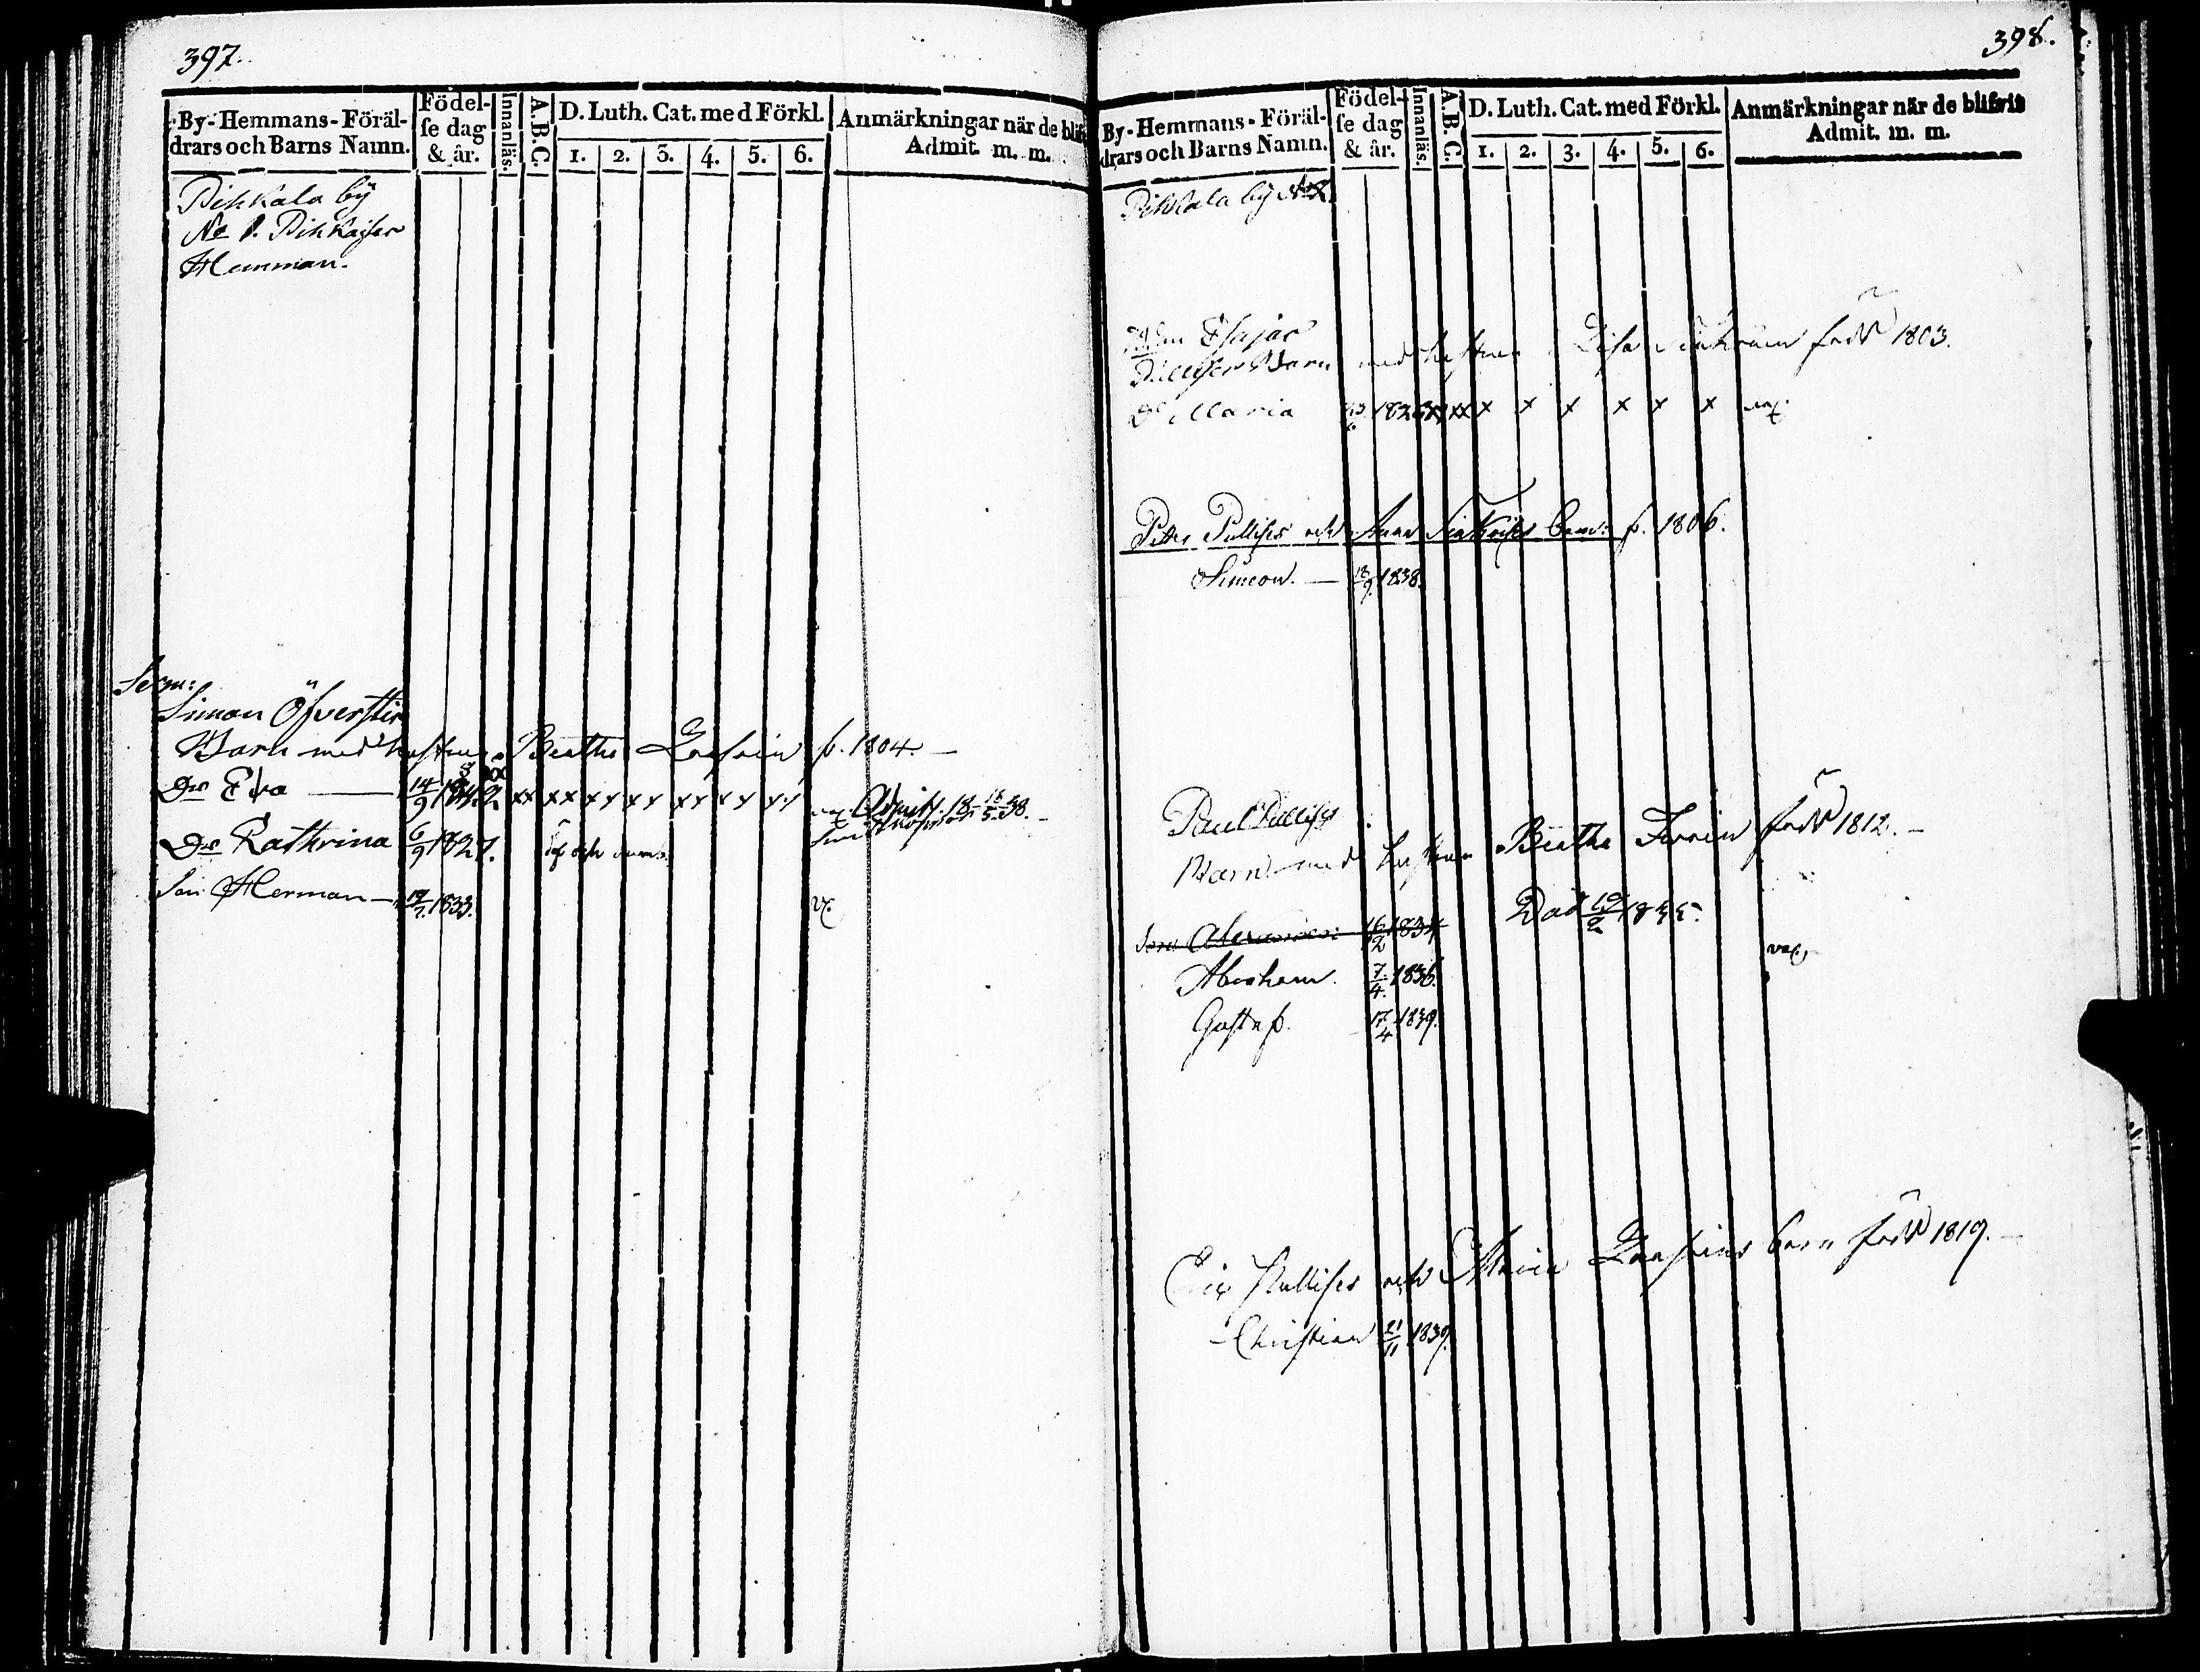 397.
By-Hemmans-Föräl-
drars och Barns Namn.
Födel-
se dag
& år.
Innanläs.
A.B.C.
D. Luth. Cat. med Förkl.
1. 2. 3. 4. 5. 6.
Anmärkningar när de blif
Admit. m. m.
Pihkala bÿ
No 1. Pihkajser
Hemman.
Simon Öfverstin
Barn med hustrun Beatha f. 1804.
Dr Eva 14/9 xx xx xx xx xx xx xx Admitt. 18 18/5 38.
Dr Kathrina 6/9 1827. döf och dumb.
Son Herman 1833. v.
398.
By-Hemmans-Föräl-
drars och Barns Namn.
Födel-
se dag
& år.
Innanläs.
A.B.C.
D. Luth. Cat. med Förkl.
1. 2. 3. 4. 5. 6.
Anmärkningar när de blifvit
Admit. m. m.
Pihkala bÿ
Esajas
Pullises Barn med hustrun Lisa född 1803.
Dr Maria x x x x x x vax.
Petter Pullises och Anna barn f. 1806.
Simeon. 18/9 1838.
Paul Pullises
Barn med hustrun Beatha född 1812.
Son 16/2 1834 Död 19/2 1835.
Abraham. 7/4 1836. vax.
Gustaf. 17/4 1839.
Eric Pullises och barn född 1819.
Christian 21/11 1839.